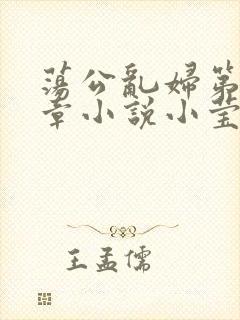 蕩公亂婦第
章小説小莹
王孟儒